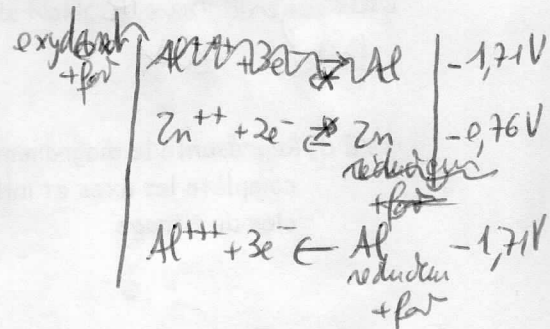 oxydant Al+++ + 3e- ⇄ Al -1,71V
+ fort
Zn++ + 2e- ⇄ Zn -0,76V
réducteur
+ fort
Al+++ + 3e- ← Al -1,71V
reducteur
+ fort